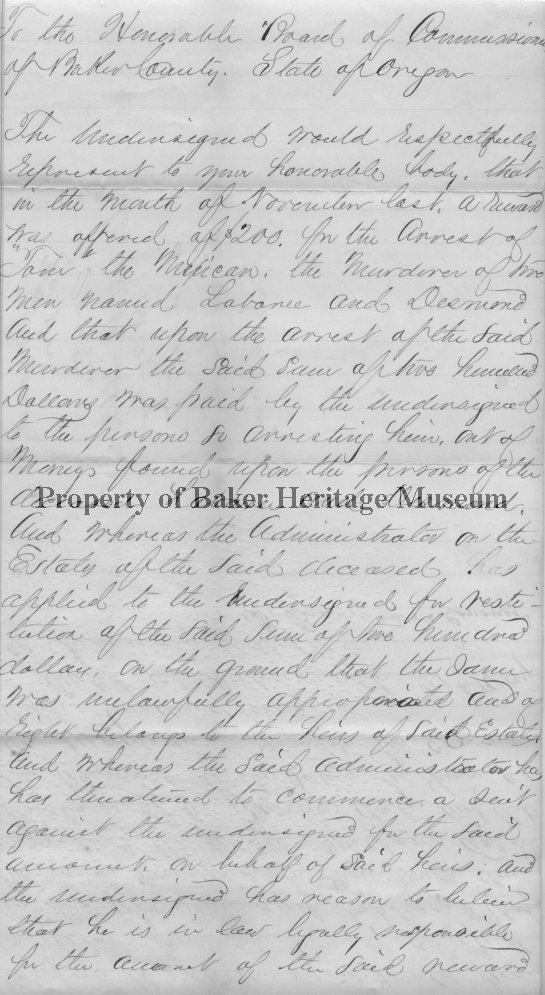 To the Honorable Board of Commissioners
of Baker County. State of Oregon
The Undersigned would respectfully
represent to your honorable body, that
in the month of November last, a reward
was offered of $200. for the Arrest of
"Tom" the Mexican. the Murderer of two
Men named Laboree and Desmond
And that upon the arrest of the said
Murderer the said Sum of two hundred
Dollars was paid by the undersigned
to the persons so arresting him, out of
Moneys found upon the persons of the
Property of Baker Heritage Museum
And whereas the Administrator on the
Estates of the said deceased has
applied to the undersigned for resti-
tution of the said Sum of two hundred
dollars, on the ground that the same
was unlawfully appropriated and of
right belongs to the heirs of said Estates
And whereas the said administrator has
has threatened to commence a suit
against the undersigned for the said
amount, on behalf of said heirs; and
the undersigned has reason to believe
that he is in law legally responsible
for the amount of the said reward